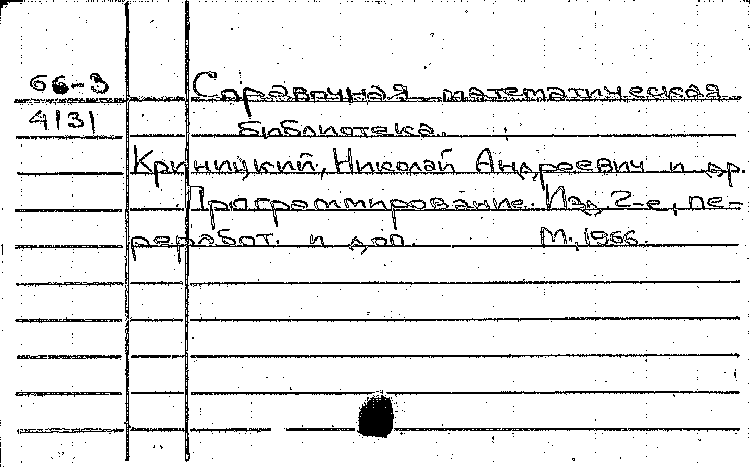 66-3 Справочная математическая
4131 библиотека.
Криницкий, Николай Андреевич и др.
Программирование. Изд 2-е, пе-
реработ. и доп. М., 1966.